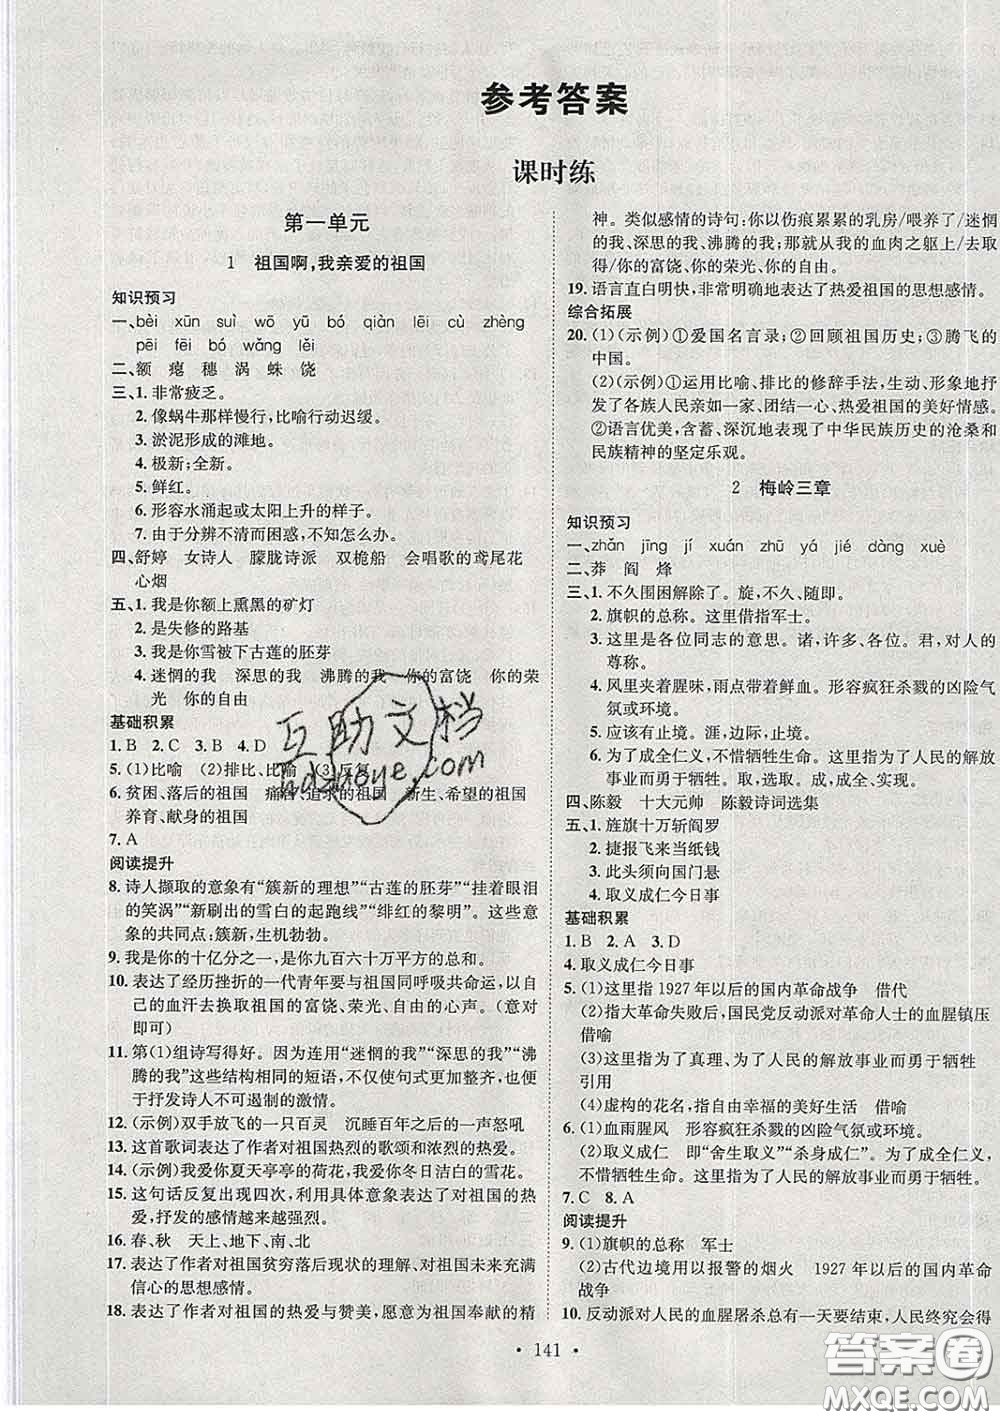 参考答案
课时练
第一单元
1 祖国啊,我亲爱的祖国
知识预习
一、bèi xūn suì wō yū bó qiàn lēi cù zhèng
pēi fēi bó wǎng lěi
二、额 瘪 穗 涡 蛛 饶
三、1. 非常疲乏。
2. 像蜗牛那样慢行,比喻行动迟缓。
3. 淤泥形成的滩地。
4. 极新;全新。
5. 鲜红。
6. 形容水涌起或太阳上升的样子。
7. 由于分辨不清而困惑,不知怎么办。
四、舒婷 女诗人 朦胧诗派 双桅船 会唱歌的鸢尾花
心烟
五、1. 我是你额上熏黑的矿灯
2. 是失修的路基
3. 我是你雪被下古莲的胚芽
4. 迷惘的我 深思的我 沸腾的我 你的富饶 你的荣
光 你的自由
基础积累
1. B 2. C 3. B 4. D
5. (1)比喻 (2)排比、比喻 (3)反复
6. 贫困、落后的祖国 痛苦、追求的祖国 新生、希望的祖国
养育、献身的祖国
7. A
阅读提升
8. 诗人撷取的意象有“簇新的理想”“古莲的胚芽”“挂着眼泪
的笑涡”“新刷出的雪白的起跑线”“绯红的黎明”。这些意
象的共同点:簇新,生机勃勃。
9. 我是你的十亿分之一,是你九百六十万平方的总和。
10. 表达了经历挫折的一代青年要与祖国同呼吸共命运,以自
己的血汗去换取祖国的富饶、荣光、自由的心声。(意对
即可)
11. 第(1)组诗写得好。因为连用“迷惘的我”“深思的我”“沸
腾的我”这些结构相同的短语,不仅使句式更加整齐,而且便
于抒发诗人不可遏制的激情。
12. (示例)双手放飞的一只百灵 沉睡百年之后的一声怒吼
13. 这首歌词表达了作者对祖国热烈的歌颂和浓烈的热爱。
14. (示例)我爱你夏天亭亭的荷花,我爱你冬日洁白的雪花。
15. 这句话反复出现四次,利用具体意象表达了对祖国的热
爱,抒发的感情越来越强烈。
16. 春、秋 天上、地下、南、北
17. 表达了作者对祖国贫穷落后现状的理解、对祖国未来充满
信心的思想感情。
18. 表达了作者对祖国的热爱与赞美,愿意为祖国奉献的精
神。类似感情的诗句:你以伤痕累累的乳房/喂养了/迷惘
的我、深思的我、沸腾的我;那就从我的血肉之躯上/去取
得/你的富饶、你的荣光、你的自由。
19. 语言直白明快,非常明确地表达了热爱祖国的思想感情。
综合拓展
20. (1)(示例)①爱国名言录;②回顾祖国历史;③腾飞的
中国。
(2)(示例)①运用比喻、排比的修辞手法,生动、形象地抒
发了各族人民亲如一家、团结一心、热爱祖国的美好情感。
②语言优美,含蓄、深沉地表现了中华民族历史的沧桑和
民族精神的坚定乐观。
2 梅岭三章
知识预习
一、zhǎn jīng jí xuán zhū yá jié dàng xuè
二、莽 阎 烽
三、1. 不久围困解除了。旋,不久、随即。
2. 旗帜的总称。这里借指军士。
3. 这里是各位同志的意思。诸,许多、各位。君,对人的
尊称。
4. 风里夹着腥味,雨点带着鲜血。形容疯狂杀戮的凶险气
氛或环境。
5. 应该有止境。涯,边际,止境。
6. 为了成全仁义,不惜牺牲生命。这里是为了人民的解放
事业而勇于牺牲。取,选取。成,成全、实现。
四、陈毅 十大元帅 陈毅诗词选集
五、1. 旌旗十万斩阎罗
2. 捷报飞来当纸钱
3. 此头须向国门悬
4. 取义成仁今日事
基础积累
1. B 2. A 3. D
4. 取义成仁今日事
5. (1)这里指1927年以后的国内革命战争 借代
(2)指大革命失败后,国民党反动派对革命人士的血腥镇压
借喻
(3)这里指为了真理、为了人民的解放事业而勇于牺牲
引用
(4)虚构的花名,指自由幸福的美好生活 借喻
6. (1)血雨腥风 形容疯狂杀戮的凶险气氛或环境。
(2)取义成仁 即“舍生取义”“杀身成仁”。为了成全仁义,
不惜牺牲生命。这里是为了人民的解放事业而勇于牺牲。
7. C 8. A
阅读提升
9. (1)旗帜的总称 军士
(2)古代边境用以报警的烟火 1927年以后的国内革命
战争
10. 反动派对人民的血腥屠杀总有一天要结束,人民终究会得
• 141 •
互助文档
hdzuoye.com
答案圈
MXQE.COM